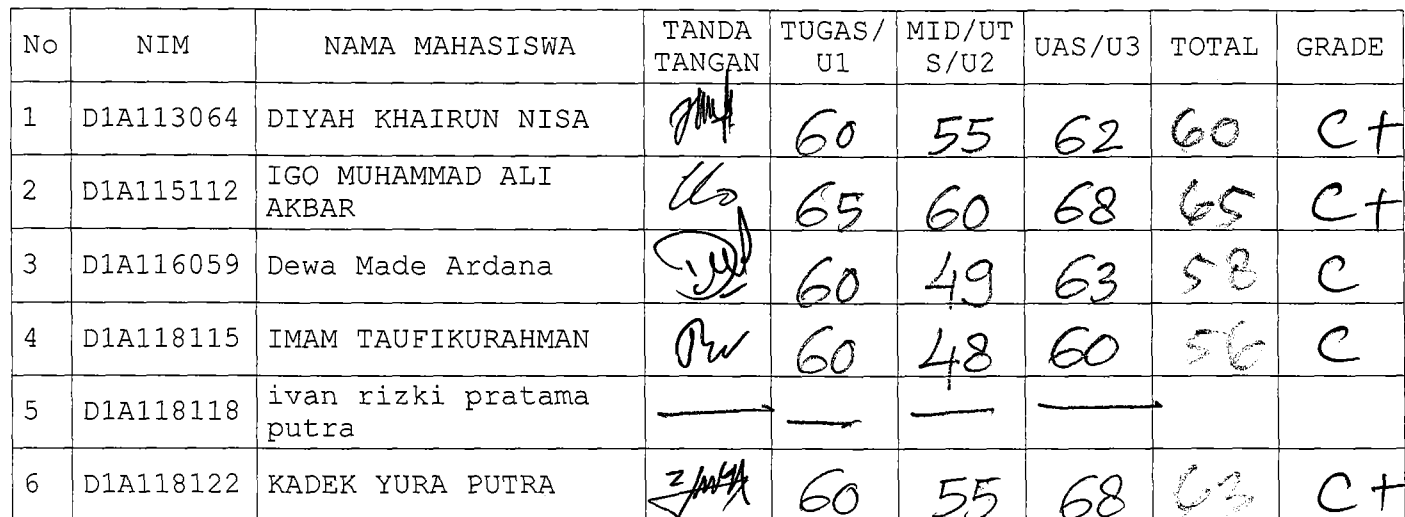 No NIM NAMA MAHASISWA TANDA TANGAN TUGAS/U1 MID/UTS/U2 UAS/U3 TOTAL GRADE
1 D1A113064 DIYAH KHAIRUN NISA 60 55 62 60 C+
2 D1A115112 IGO MUHAMMAD ALI AKBAR 65 60 68 65 C+
3 D1A116059 Dewa Made Ardana 60 49 63 58 C
4 D1A118115 IMAM TAUFIKURAHMAN 60 48 60 56 C
5 D1A118118 ivan rizki pratama putra — — — —
6 D1A118122 KADEK YURA PUTRA 60 55 68 63 C+